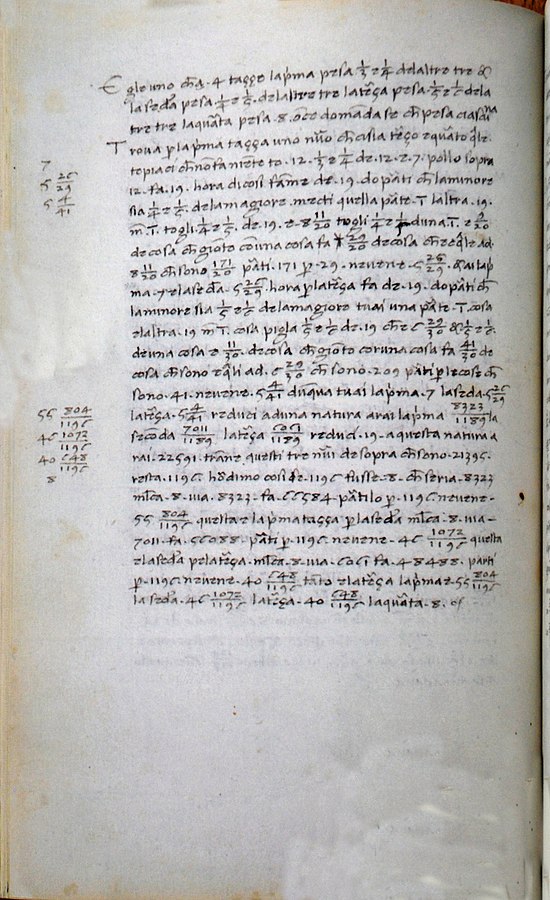 E gle uno che à 4 taççe la p'ma pesa 1/3 e 1/4 de l altre tre &
la seda pesa 1/4 e 1/5 de l altre tre la terça pesa 1/5 e 1/6 de la
tre tre la quarta pesa 8 oncie domandase che pesa ciascuna
Trova per la p'ma taçça uno nuo che abia terço e quarto che le
7
5 26/29
5 4/41
12 fa 19 hora di così famme de 19 do parti che la minore
sia 1/4 e 1/5 de la magiore mecti quella parte 1 l altra 19
m 1 togli 1/4 e 1/5 de 19 e 8 11/20 togli 1/4 e 1/5 d una 1 e 9/20
de cosa che gionto con una cosa fa 1 29/20 de cosa che equale ad
8 11/20 che sono 171/20 parti 171 per 29 ne vene 5 26/29 & ai la p
ma 7 e la seda 5 26/29 hora per la terça fa de 19 do parti che
la minore sia 1/5 e 1/6 de la magiore tu ai una parte 1 cosa
e l altra 19 m 1 cosa piglia 1/5 e 1/6 de 19 ch è 6 29/30 & 1/5 e 1/6
de una cosa e 11/30 de cosa che gionto con una cosa fa 41/30 de
cosa che sono equali ad 6 29/30 che sono 209 parti per le cose che
sono 41 ne vene 5 4/41 dunqua tu ai la p'ma 7 la seda 5 26/29
la terça 5 4/41 reduci ad una natura arai la p'ma 8323/1189 la
seconda 7011/1189 la terça 6061/1189 reduci 19 a questa natura a
rai 22591 trane questi tre nui de sopra che sono 21395
resta 1196 hora dimo cosi se 1196 fusse 8 che seria 8323
mca 8 via 8323 fa 66584 partilo per 1196 ne vene
55 804/1196 questa e la p'ma taçça per la seda mca 8 via
7011 fa 56088 parti per 1196 ne vene 46 1072/1196 questa
e la seda per la terça mca 8 via 6061 fa 48488 parti
per 1196 ne vene 40 648/1196 tanto e la terça la p'ma e 55 804/1196
la seda 46 1072/1196 la terça 40 648/1196 la quarta 8
55 804/1196
46 1072/1196
40 648/1196
8